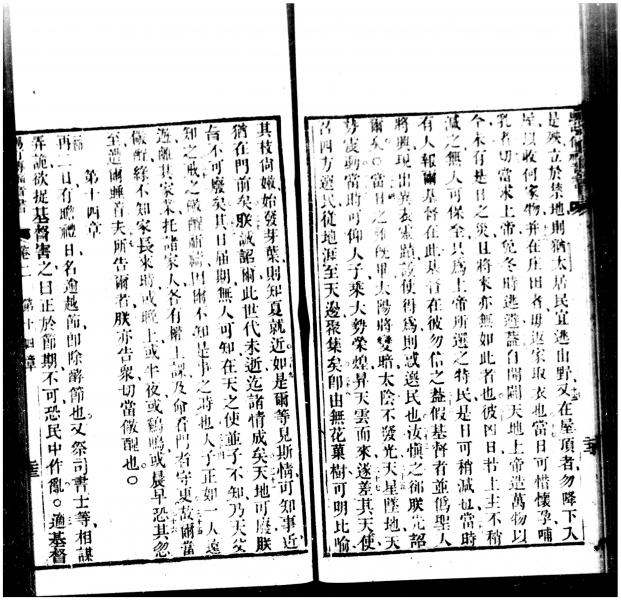 是殃立於禁地則猶太居民宜逃山野又在屋頂者勿降下入
屋以收何家物并在庄田者毋返家取衣也當日可惜懷孕哺
乳者切當求上帝免冬時逃避蓋自開闢天地上帝造萬物以
今未有是日之災且將來亦無如此者也彼凶日若上主不稍
減之無人可保全只為上帝所選之特民是日可稍減也當時
有人報爾基督在此基督在彼勿信之蓋假基督者並偽聖人
將興現出異表靈蹟設使得為則惑選民也汝慎之御朕先詔
爾矣○當日之難後畢太陽將變暗太陰不發光天星墜地天
勢震動當時可仰人子乘大勢榮煌昇天雲而來遂差其天使
召四方選民從地涯至天邊聚集矣即由無花菓樹可明比喻
其枝尚嫩始發芽葉則知夏就近如是爾等見斯情可知事近
猶在門前矣朕誠詔爾此世代未逝迄諸情成矣天地可廢朕
言不可廢矣其日屆期無人可知在天之使並子不知乃天父
知之戒之儆醒祈禱因爾不知是事之時也人子正如一人遠
遊離其家業托諸家人各有權上課及命看門者守更故爾當
儆醒緣不知家長來時或晚上或半夜或鷄鳴或晨早恐其忽
至遇爾睡着夫所告爾者朕亦告衆切當儆醒也○
第十四章
再二日有瞻禮日名逾越節即除酵節也又祭司書士等相謀
弄詭欲捉基督害之曰正於節期不可恐民中作亂○適基督
卷二 第十四章